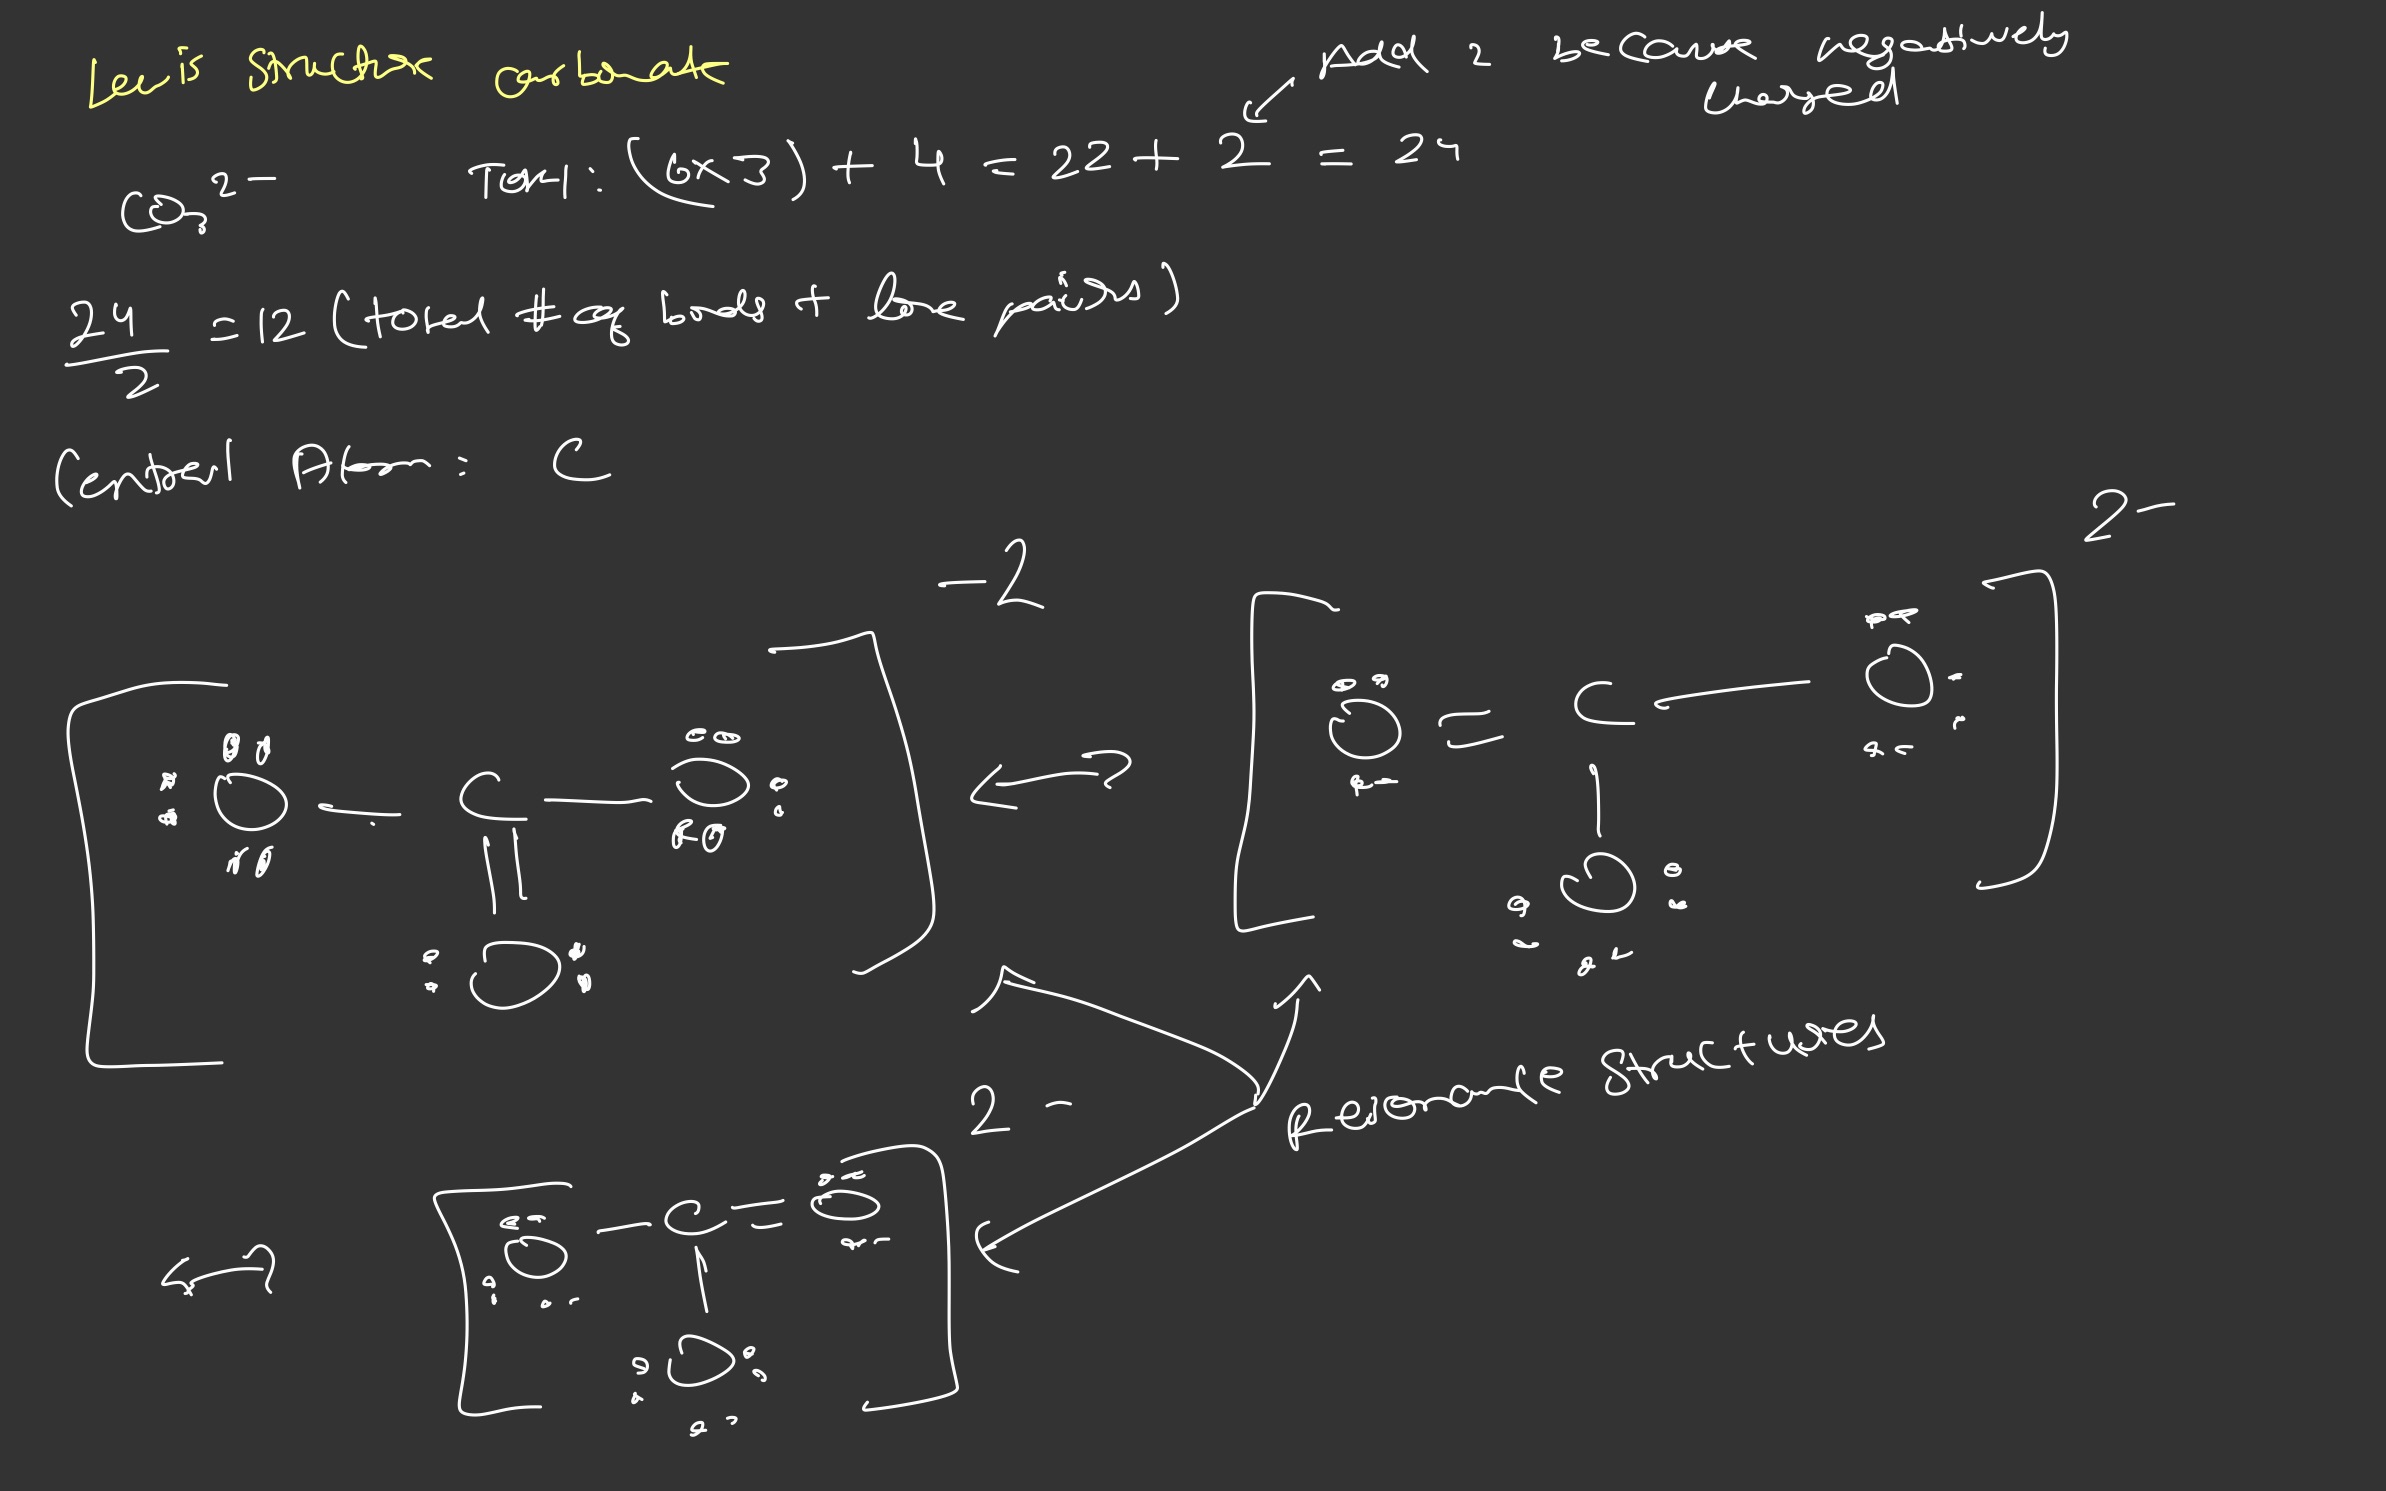 Lewis Structure carbonate
Add 2 because negatively
charged
CO₃²⁻ Total: (6×3) + 4 = 22 + 2 = 24
24/2 = 12 (total # of bonds + lone pairs)
Central Atom: C
-2
2-
O — C — O
O = C — O
O
O
2-
Resonance Structures
O — C = O
O